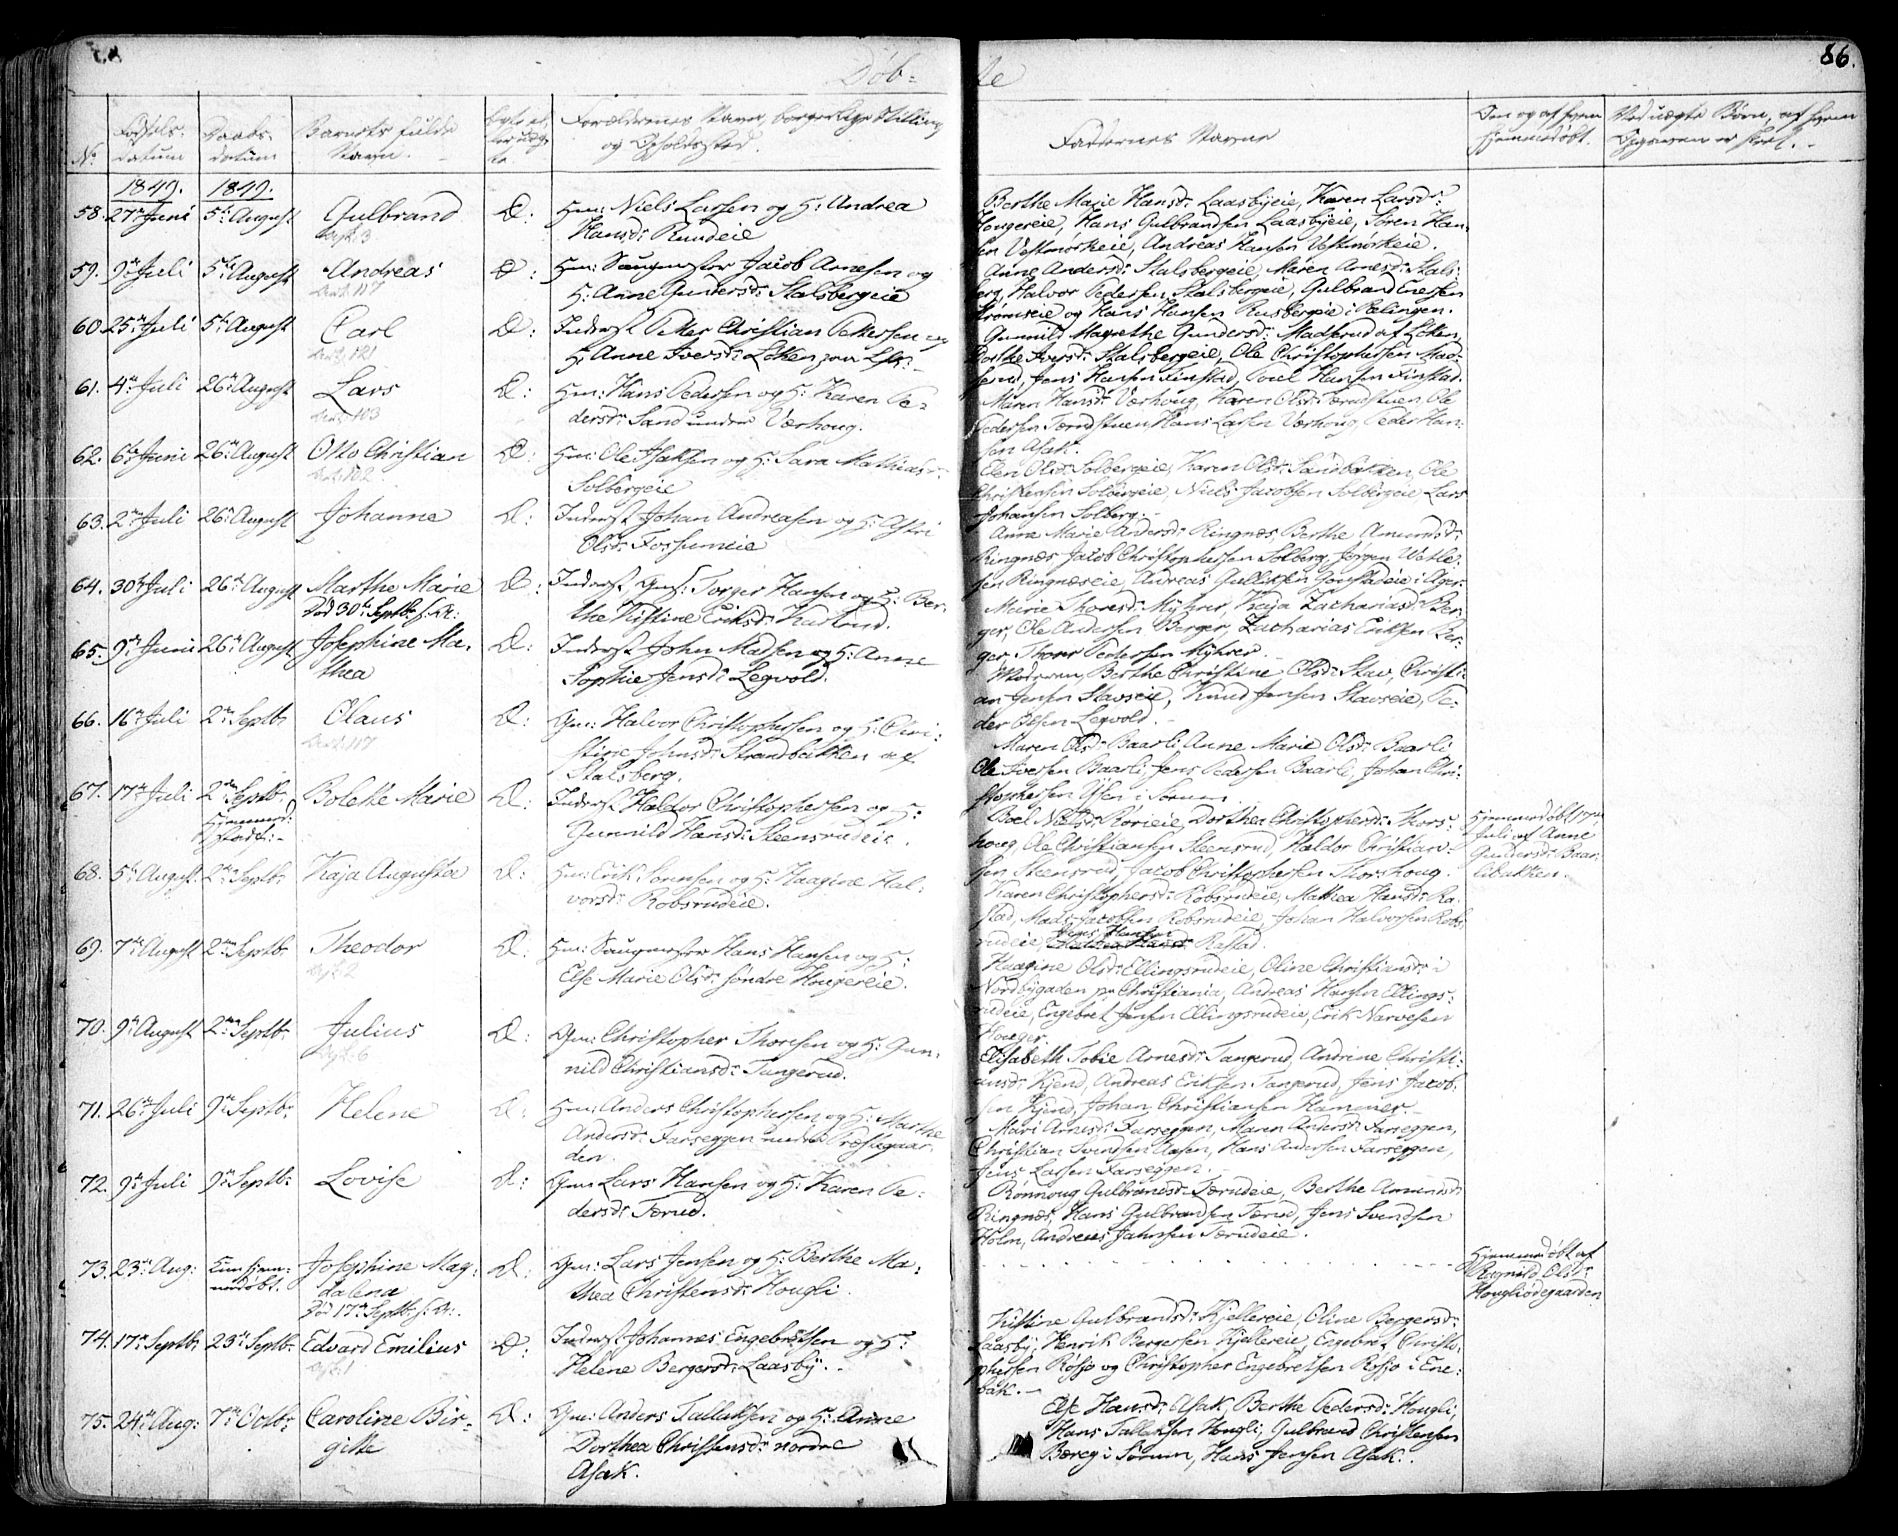 86.
Døb-
te
No
Fødsels-
datum
Daabs-
datum
Barnets fulde
Navn.
Forældrenes Navn, borgerlige Stilling
og Opholdssted.
Faddernes Navne
Den og af hvem
hjemmedøbt.
Ved uægte Børn, af hvem
1849. 1849.
58. 27de Juni 5te August Gulbrand
Hm: Niels Larsen og H: Andrea
Hansdr: Rundeie
Berthe Marie Hansdr: Laasbyeie, Karen Larsdr:
Hougereie, Hans Gulbrandsen Laasbyeie, Søren Han-
sen Vestmorkeie, Andreas Hansen Vestmorkeie.
59. 9de Juli 5te August Andreas
Hm: Saugmester Jacob Arnesen og
H: Anne Gundersdr: Stalsbergeie
Anne Andersdr: Stalsbergeie, Maren Arnesdr: Stals-
berg, Halvor Pedersen Stalsbergeie, Gulbrand Enersen
Strømseie og Hans Hansen Rusbergeie i Rælingen.
60. 25de Juli 5te August Carl
Inderst Petter Christian Pettersen og
H: Anne Iversdr: Løken
Gunnild Magrethe Gundersdr: Madserud af Løken,
Dorthe Iversdr: Stalsbergeie, Ole Christophersen Mad-
serud, Jens Hansen Finstad, Poul Hansen Finstad.
61. 4de Juli 26de August Lars
Hm: Hans Pedersen og H: Karen Pe-
dersdr: Sand under Værhoug.
Maren Hansdr: Værhoug, Karen Olsdr: Tærudstuen, Ole
Pedersen Tærudstuen, Hans Larsen Værhoug, Peder Han-
sen Asak.
62. 6te Juni 26de August Otto Christian
Hm: Ole Isaksen og H: Sara Mathiasdr:
Solbergeie
Elen Olsdr: Solbergeie, Karen Olsdr: Sandbakken, Ole
Christensen Solbergeie, Niels Jacobsen Solbergeie, Lars
Johansen Solberg.
63. 2den Juli 26de August Johanne
Inderst Johan Andreasen og H: Astri
Olsdr: Fossumeie
Anne Marie Andersdr: Ringnæs, Berthe Amundsdr:
Ringnæs, Jacob Christophersen Solberg, Jørgen Vetle-
sen Ringnæseie, Andreas Gulliksen i Ager.
64. 30te Juli 26de August Marthe Marie
Død 30te Septbr: s. A:
Inderst Torger Hansen og H: Ber-
the Kistine Eriksdr:
Marie Thoresdr: Myhrer, Kaja Zachariasdr: Ber-
ger, Ole Andersen Berger, Zacharias Eriksen Ber-
ger, Thore Pedersen Myhrer.
65. 9de Juni 26de August Josephine Ma-
thea
Inderst John Madsen og H: Anne
Sophie Jensdr: Legvold.
Moderen, Berthe Christine Olsdr: Stav, Christi-
an Jensen Stavseie, Knud Jensen Stavseie, Pe-
der Olsen Legvold.
66. 16de Juli 2den Septbr: Olaus
Gm: Halvor Christophersen og H: Chri-
stine Johnsdr: Strandbakken af
Stalsberg.
Maren Olsdr: Baarli, Anne Marie Olsdr: Baarli,
Ole Iversen Baarli, Jens Pedersen Baarli, Johan Chri-
stophersen i Sørum
67. 17de Juli 2den Septbr: Bolette Marie
Inderst Haldor Christophersen og H:
Gunnild Hansdr: Steensrudeie.
Boel Nielsdr: Rørieie, Dorthea Christophersdr: Thors-
houg, Ole Christiansen Steensrud, Haldor Christian-
sen Steensrud, Jacob Christophersen Thorshoug.
Hjemmedøbt 17de
Juli af Anne
Gundersdr: Baar-
libakken.
68. 5te August 2den Septbr: Kaja Augusta
Hm: Erik Sørensen og H: Haagine Hal-
vorsdr: Robsrudeie.
Karen Christophersdr: Robsrudeie, Mathea Hansdr: Ra-
stad, Mads Jacobsen Robsrudeie, Johan Halvorsen Robs-
rudeie, Hans Hansen Rastad.
69. 7de August 2den Septbr: Theodor
Hm: Saugmester Hans Hansen og H:
Else Marie Olsdr: søndre Hougereie.
Haagine Olsdr: Ellingsrudeie, Oline Christiansdr: i
Nordbygaden pr Christiania, Andreas Hansen Ellings-
rudeie, Engebret Jensen Ellingsrudeie, Erik Narvesen
Houger.
70. 9de August 2den Septbr: Julius
Gm: Christopher Thoresen og H: Gun-
nild Christiansdr: Tangerud.
Elisabeth Tobie Arnesdr: Tangerud, Andrine Christi-
ansdr: Kjend, Andreas Eriksen Tangerud, Jens Jacob-
sen Kjend, Johan Christiansen Hammer.
71. 26de Juli 9de Septbr: Helene
Hm: Anders Christophersen og H: Marthe
Andersdr: Farseggen under Præstegaar-
den.
Mari Arnesdr: Farseggen, Maren Andersdr: Farseggen,
Christian Svendsen Aasen, Hans Andersen Farseggen,
Jens Larsen Farseggen.
72. 9de Juli 9de Septbr: Lovise
Gm: Lars Hansen og H: Karen Pe-
dersdr: Tærud.
Rønnoug Gulbrandsdr: Tærudeie, Berthe Amundsdr:
Ringnæs, Hans Gulbrandsen Tærud, Jens Svendsen
Holm, Andreas Jahnsen Tærudeie.
73. 23de Aug: Kun hjem-
medøbt. Josephine Mag-
dalena
Død 17de Septbr: s. A:
Gm: Lars Jensen og H: Berthe Ma-
thea Christensdr: Hougli.
Hjemmedøbt af
Ragnild Olsdr:
Hougliødegaarden
74. 17de Septbr: 23de Septbr: Edvard Emilius
Inderst Johannes Engebretsen og H:
Helene Bergersdr: Laasby.
Kistine Gulbrandsdr: Kjellereie, Oline Bergersdr:
Laasby, Henrik Bergersen Kjellereie, Engebret Christo-
phersen Røsjø og Christopher Engebretsen Røsjø i Ene-
bak.
75. 24de Aug: 7de Octbr: Caroline Bir-
gitte
Gm: Anders Tallaksen og H: Anne
Dorthea Christensdr: nordre
Asak.
Else Hansdr: Asak, Berthe Pedersdr: Hougli,
Hans Tallaksen Hougli, Gulbrand Christensen
Bæreg i Sørum, Hans Jensen Asak.